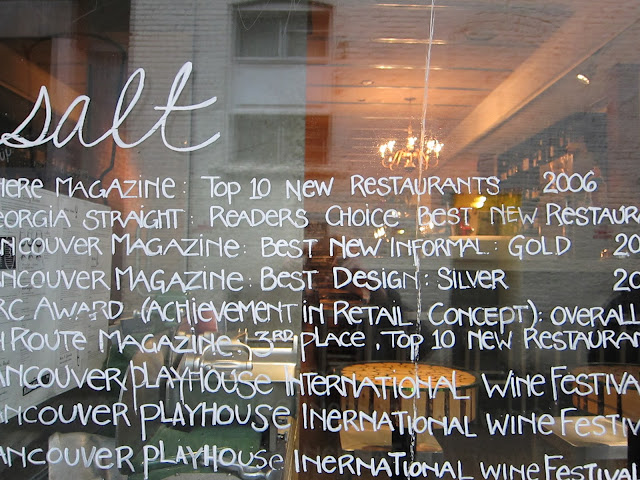 salt.
HERE MAGAZINE: TOP 10 NEW RESTAURANTS 2006
EORGIA STRAIGHT: READERS CHOICE BEST NEW RESTAUR
ANCOUVER MAGAZINE: BEST NEW INFORMAL: GOLD 20
ANCOUVER MAGAZINE: BEST DESIGN: SILVER 20
RC AWARD (ACHIEVEMENT IN RETAIL CONCEPT): OVERALL
ROUTE MAGAZINE, 3RD PLACE, TOP 10 NEW RESTAURAN
ANCOUVER PLAYHOUSE INTERNATIONAL WINE FESTIVA
ANCOUVER PLAYHOUSE INERNATIONAL WINE FESTIV
ANCOUVER PLAYHOUSE INERNATIONAL WINE FESTIVAL